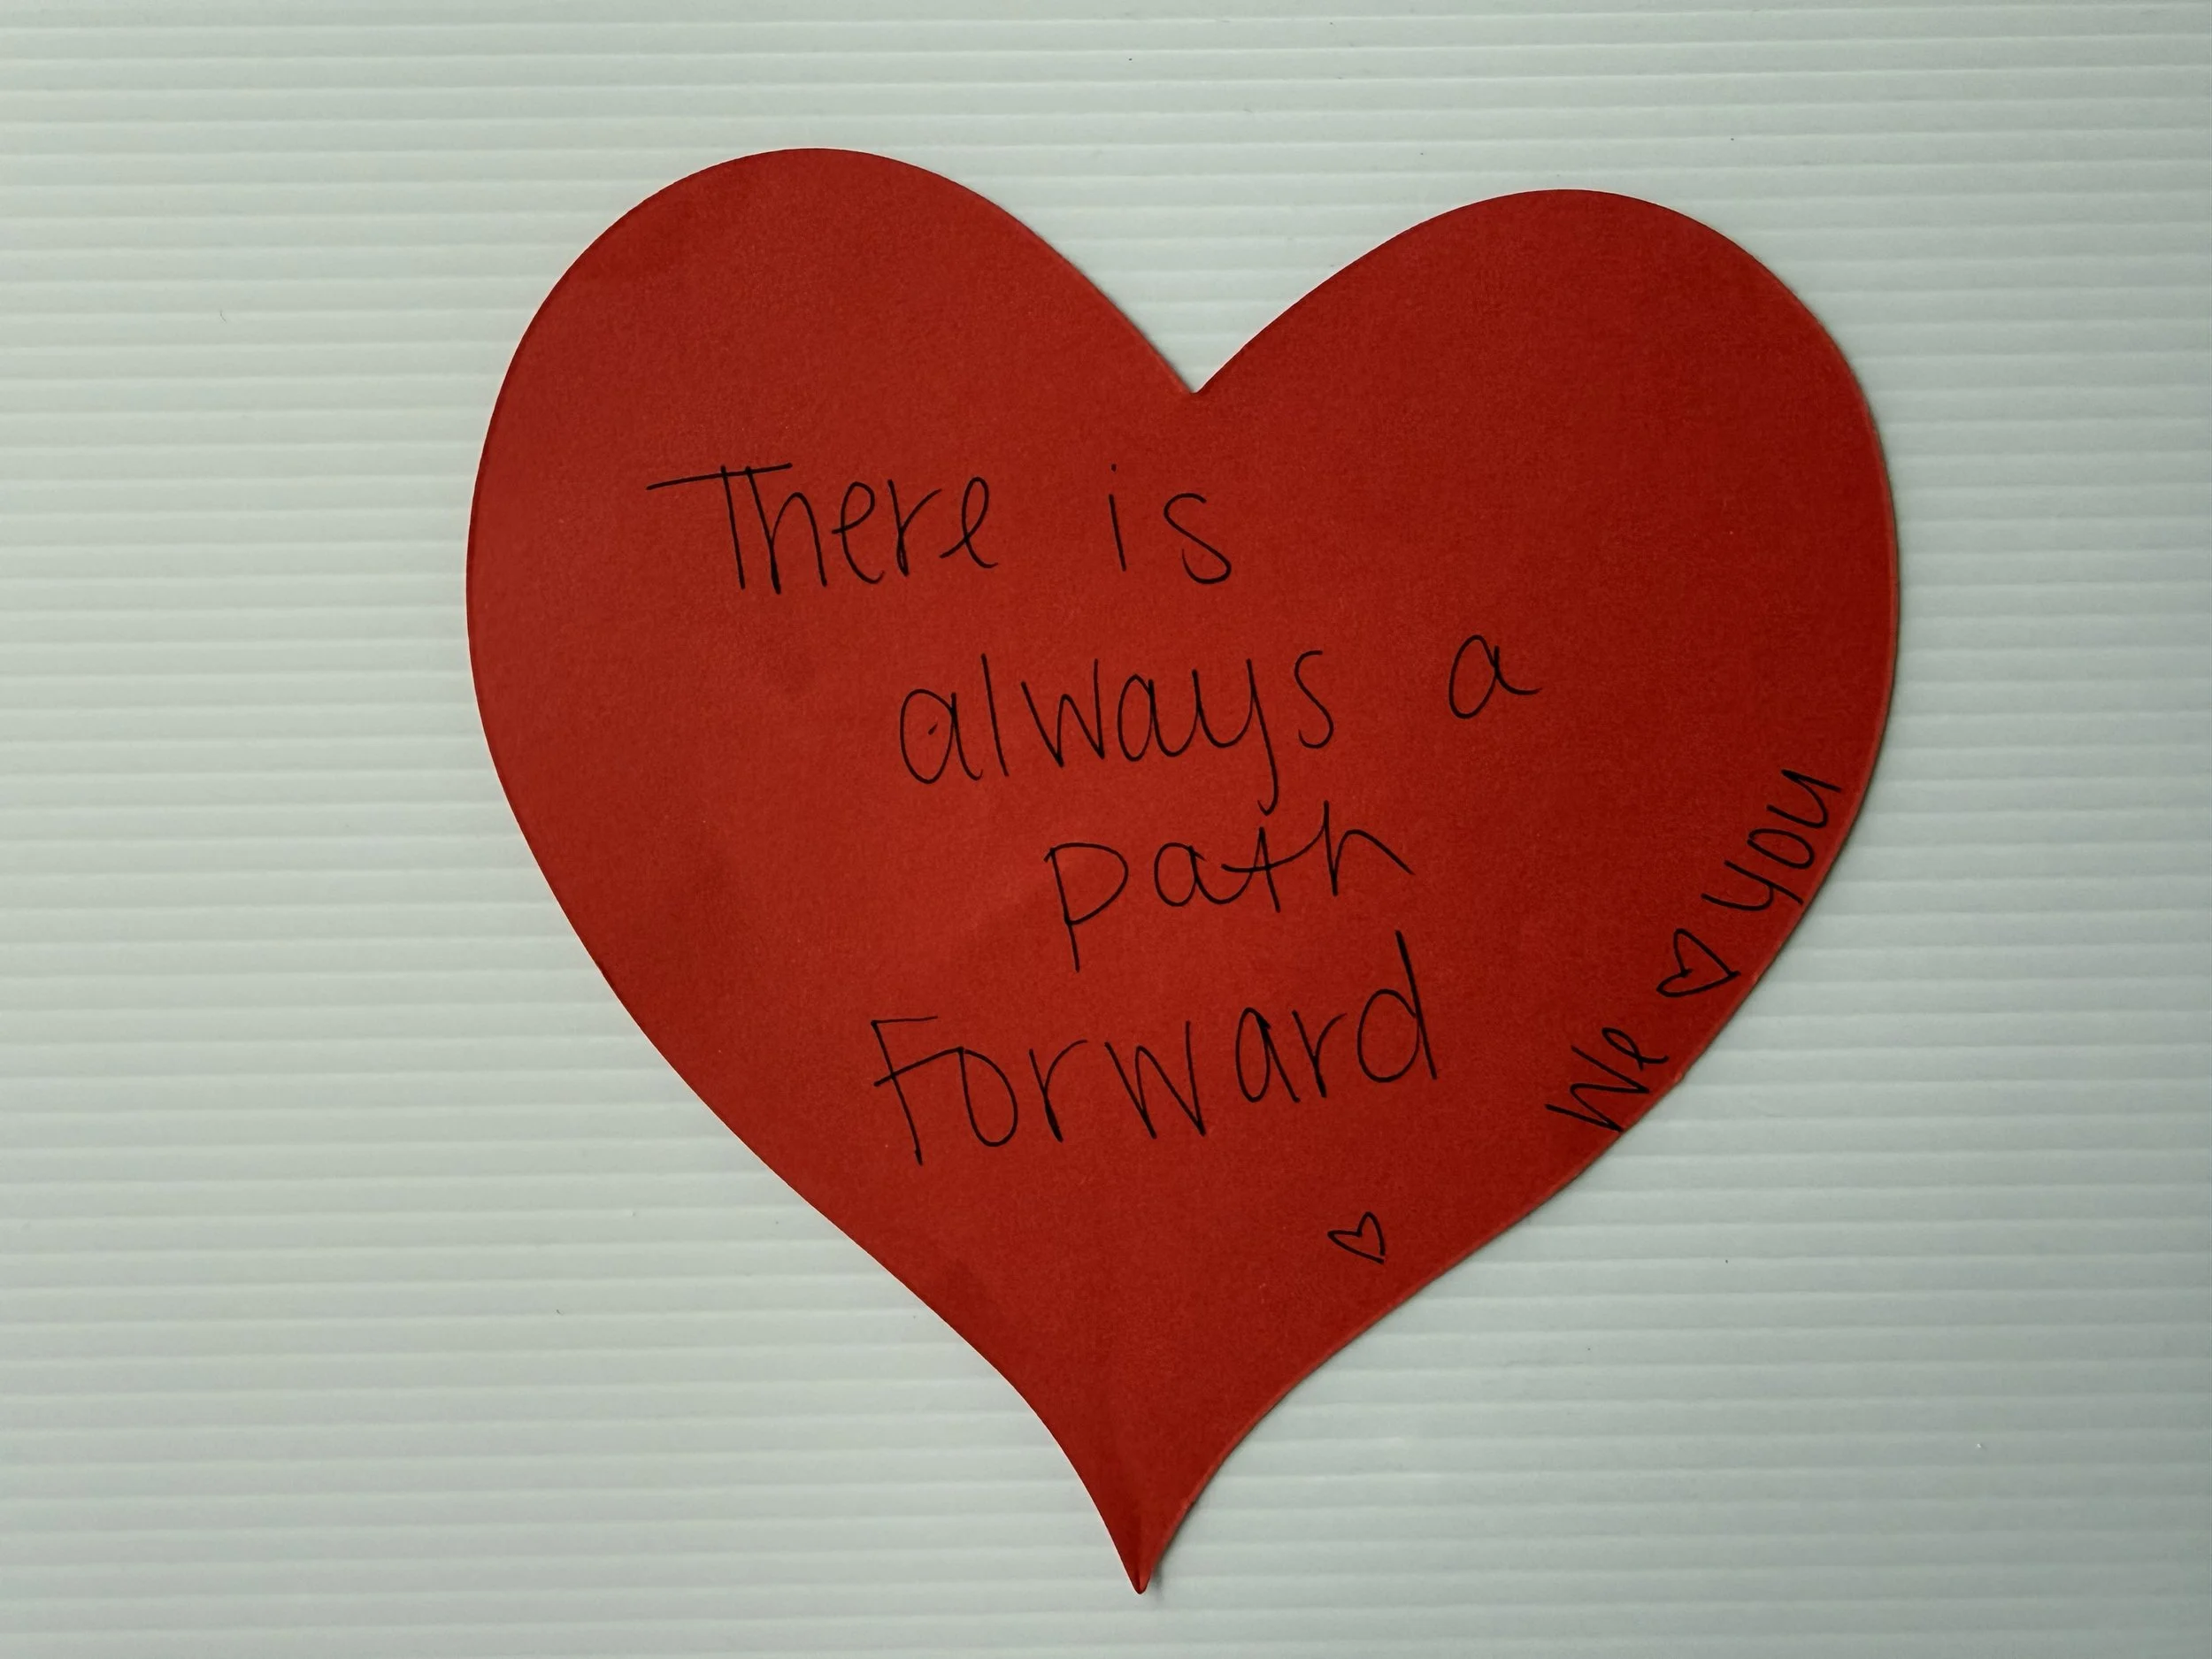 There is
always a
path
Forward
We ♡ you
♡